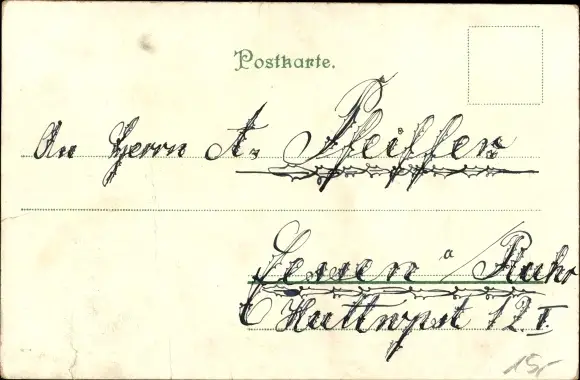 Postkarte.
An Herrn A. Pfeiffer
Essen a/Ruhr
12. I.
15,-